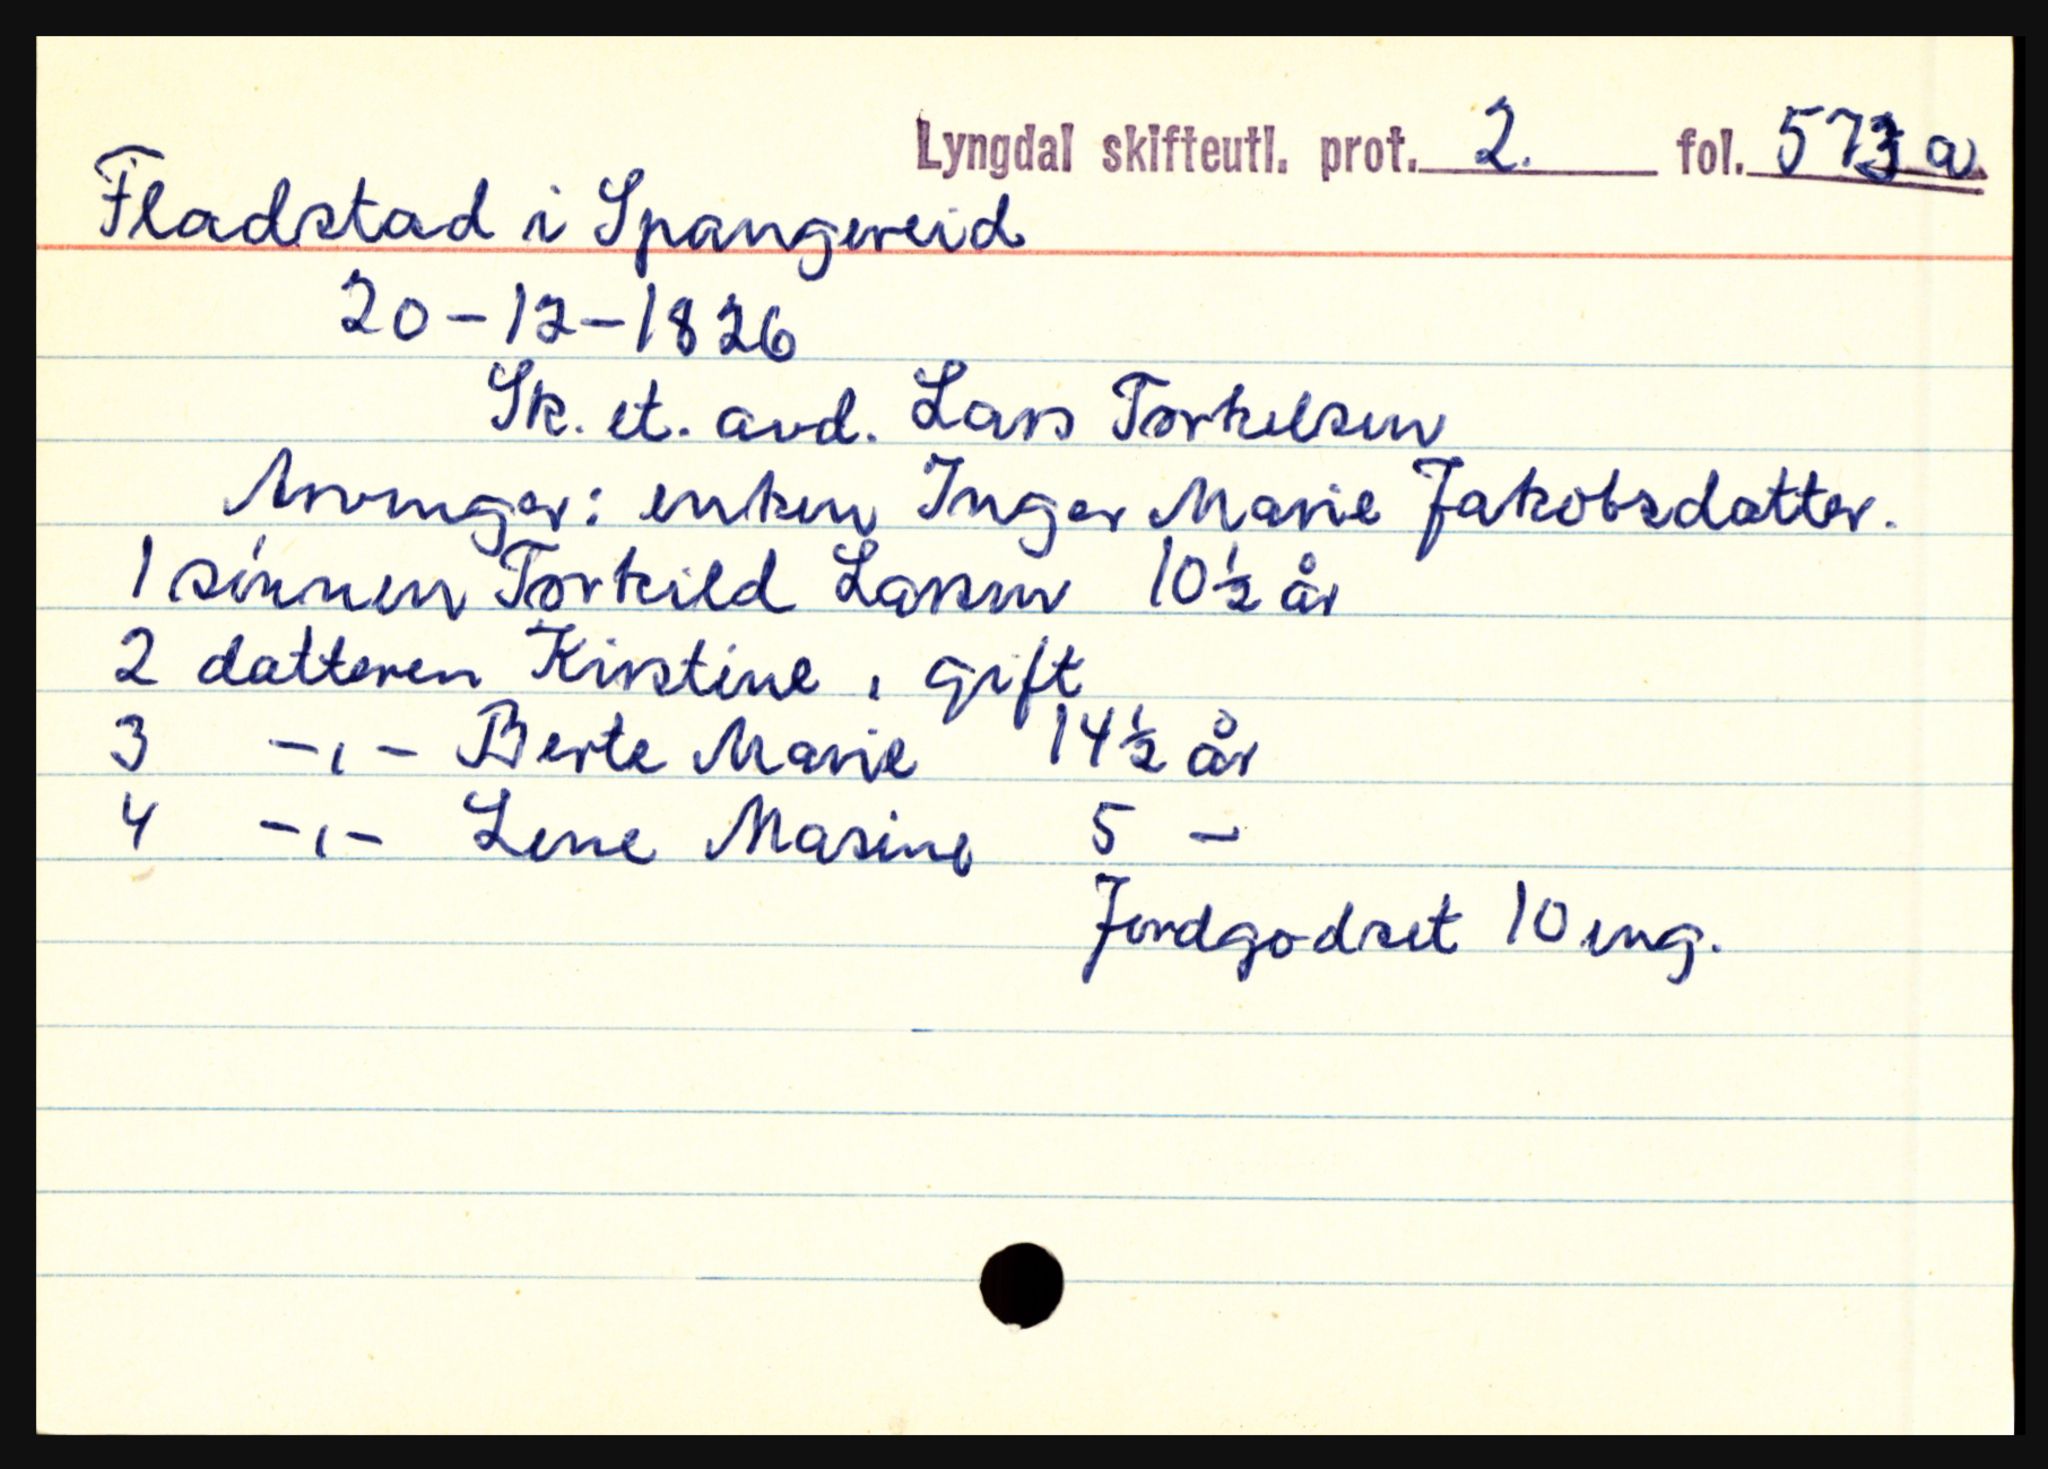 Lyngdal skifteutl. prot. 2. fol. 573 a
Fladstad i Spangereid
20-12-1826
Sk. et. avd. Lars Torkelsen
Arvinger: enken Inger Marie Jakobsdatter.
1 sønnen Torkild Larsen 10½ år
2 datteren Kirstine, gift
3 -,- Berte Marie 14½ år
4 -,- Lene Marine 5 -
Jordgodset 10 eng.